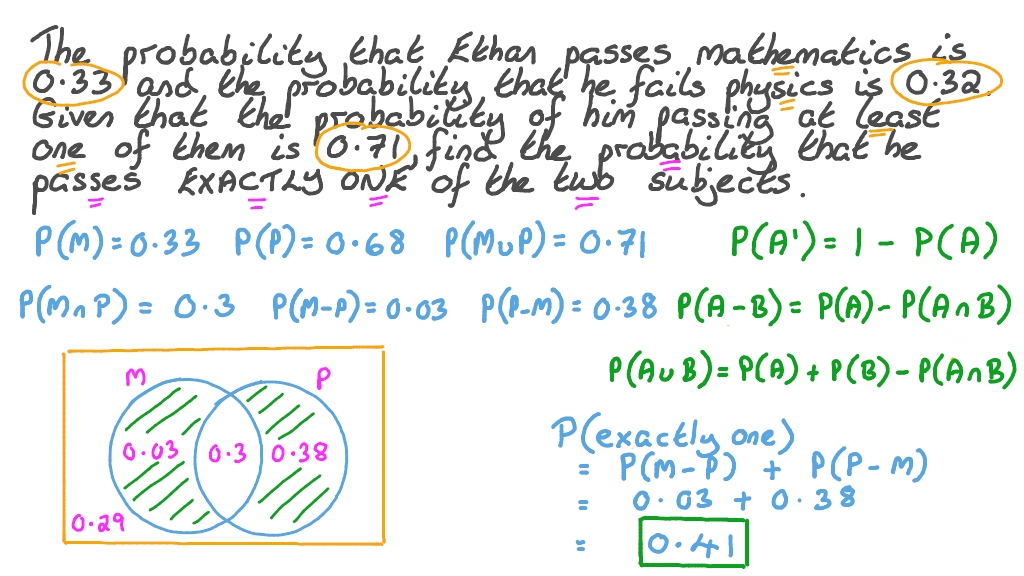 The probability that Ethan passes mathematics is
0.33 and the probability that he fails physics is 0.32.
Given that the probability of him passing at least
one of them is 0.71, find the probability that he
passes EXACTLY ONE of the two subjects.
P(M) = 0.33 P(P) = 0.68 P(M∪P) = 0.71 P(A') = 1 - P(A)
P(M∩P) = 0.3 P(M-P) = 0.03 P(P-M) = 0.38 P(A-B) = P(A) - P(A∩B)
P(A∪B) = P(A) + P(B) - P(A∩B)
M P
0.03 0.3 0.38
0.29
P(exactly one)
= P(M-P) + P(P-M)
= 0.03 + 0.38
= 0.41